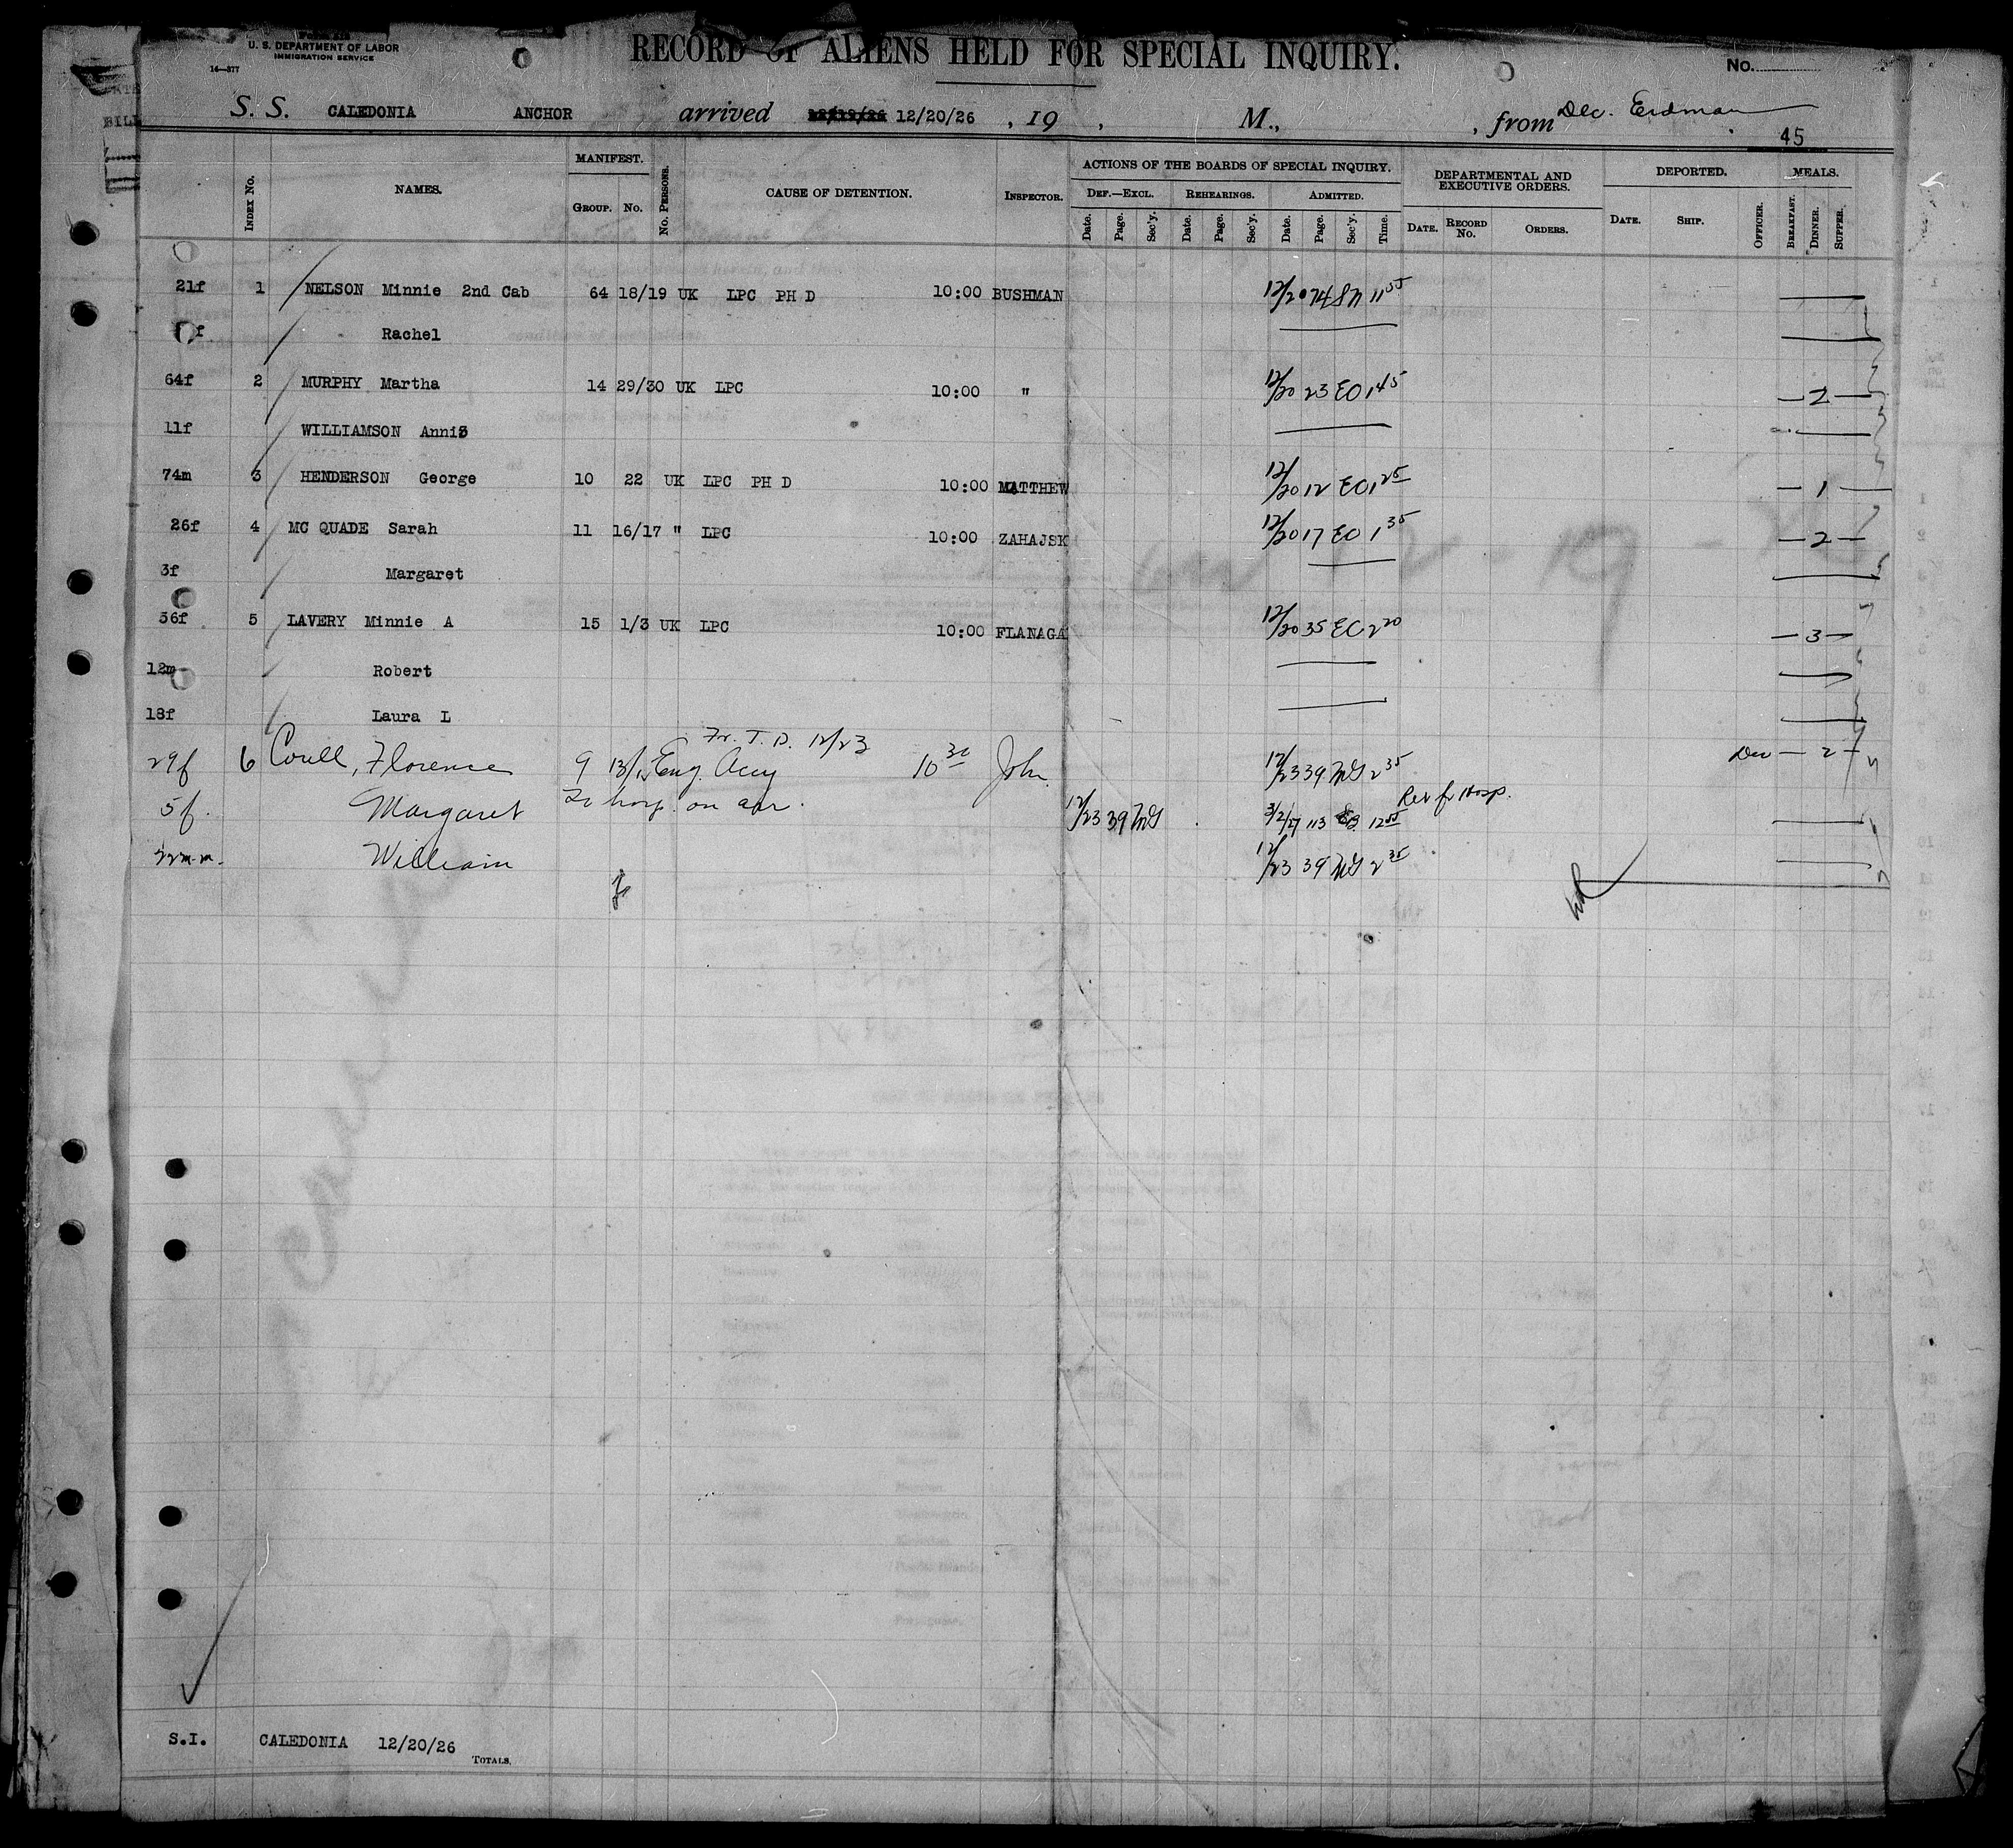 U. S. DEPARTMENT OF LABOR
IMMIGRATION SERVICE
14—377
RECORD OF ALIENS HELD FOR SPECIAL INQUIRY.
No.
S. S. CALEDONIA ANCHOR arrived 12/19/26 12/20/26 , 19 , M., , from Dec. Erdman
45
Index No. NAMES. MANIFEST. GROUP. No. No. Persons. CAUSE OF DETENTION. INSPECTOR. ACTIONS OF THE BOARDS OF SPECIAL INQUIRY. DEF.—EXCL. Date. Page. Sec'y. REHEARINGS. Date. Page. Sec'y. ADMITTED. Date. Page. Sec'y. Time. DEPARTMENTAL AND EXECUTIVE ORDERS. DATE. RECORD No. ORDERS. DEPORTED. DATE. SHIP. OFFICER. MEALS. BREAKFAST. DINNER. SUPPER.
21f 1 NELSON Minnie 2nd Cab 64 18/19 UK LPC PH D 10:00 BUSHMAN 12/20 11 55
f Rachel
64f 2 MURPHY Martha 14 29/30 UK LPC 10:00 " 12/20 23 EO 1 45 2
11f WILLIAMSON Annis
74m 3 HENDERSON George 10 22 UK LPC PH D 10:00 MATTHEW 12/20 12 EO 1 25 1
26f 4 MC QUADE Sarah 11 16/17 " LPC 10:00 ZAHAJSK 12/20 17 EO 1 35 2
3f Margaret
36f 5 LAVERY Minnie A 15 1/3 UK LPC 10:00 FLANAGA 12/20 35 EO 2 20 3
12m Robert
18f Laura L
Fr. T. D. 12/23
29f 6 Coull, Florence 9 13/15 Eng. Accy 10 30 John 12/23 39 MS 2 35 Dec 2
5f. Margaret To hosp. on arr. 12/23 39 MS 3/2/27 113 12 55 Rel fr Hosp.
William 12/23 39 MS 2 35
S.I. CALEDONIA 12/20/26
TOTALS.